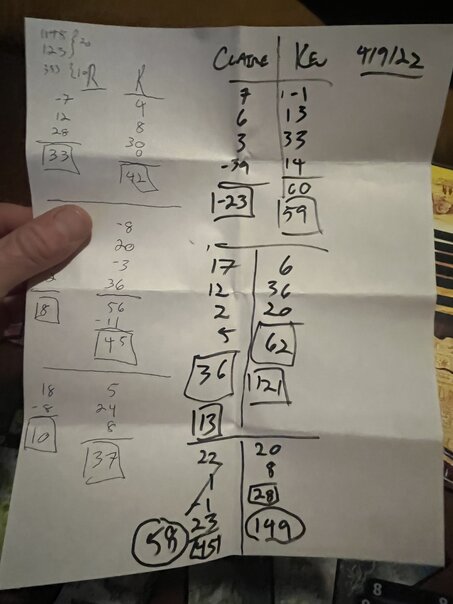 1148 } 20
123
333 { 10
R K
-7 4
12 8
28 30
33 0
42
-8
20
-3
36
18 56
-11
45
18 5
-8 24
10 8
37
CLAIRE KEV 4/9/22
7 -1
6 13
3 33
-39 14
-23 60
59
17 6
12 36
2 20
5 62
36 121
13
22 20
1 8
-1 28
23 149
58 45